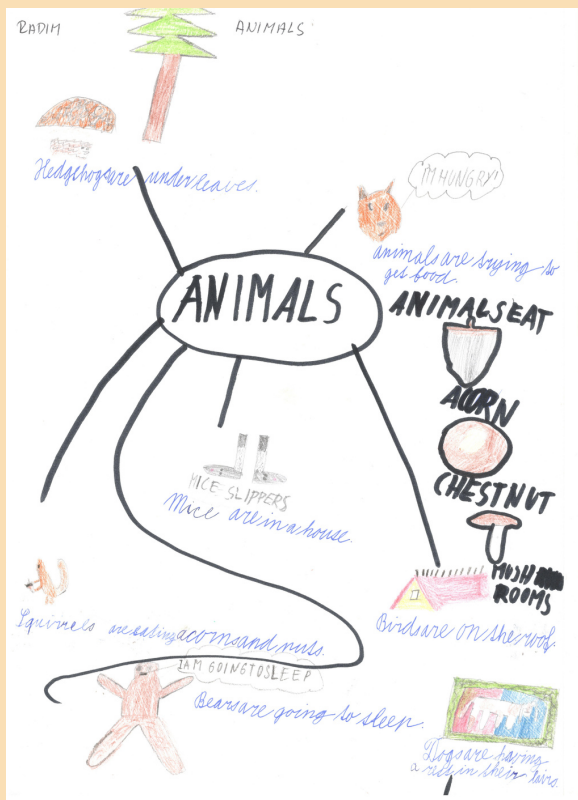 RADIM
ANIMALS
Hedgehogs are under leaves.
I'M HUNGRY!
animals are trying to
get food.
ANIMALS
ANIMALS EAT
ACORN
CHESTNUT
MUSH
ROOMS
MICE-SLIPPERS
Mice are in a house.
Squirrels are eating acorns and nuts.
Birds are on the roof.
I AM GOING TO SLEEP
Bears are going to sleep.
Dogs are having
a rest in their lairs.